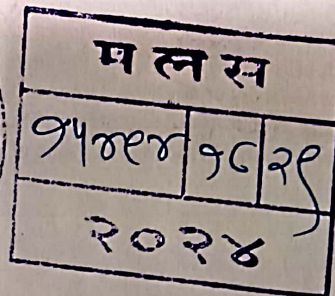 म ल स
१५४९४ १८ २९
२०२४